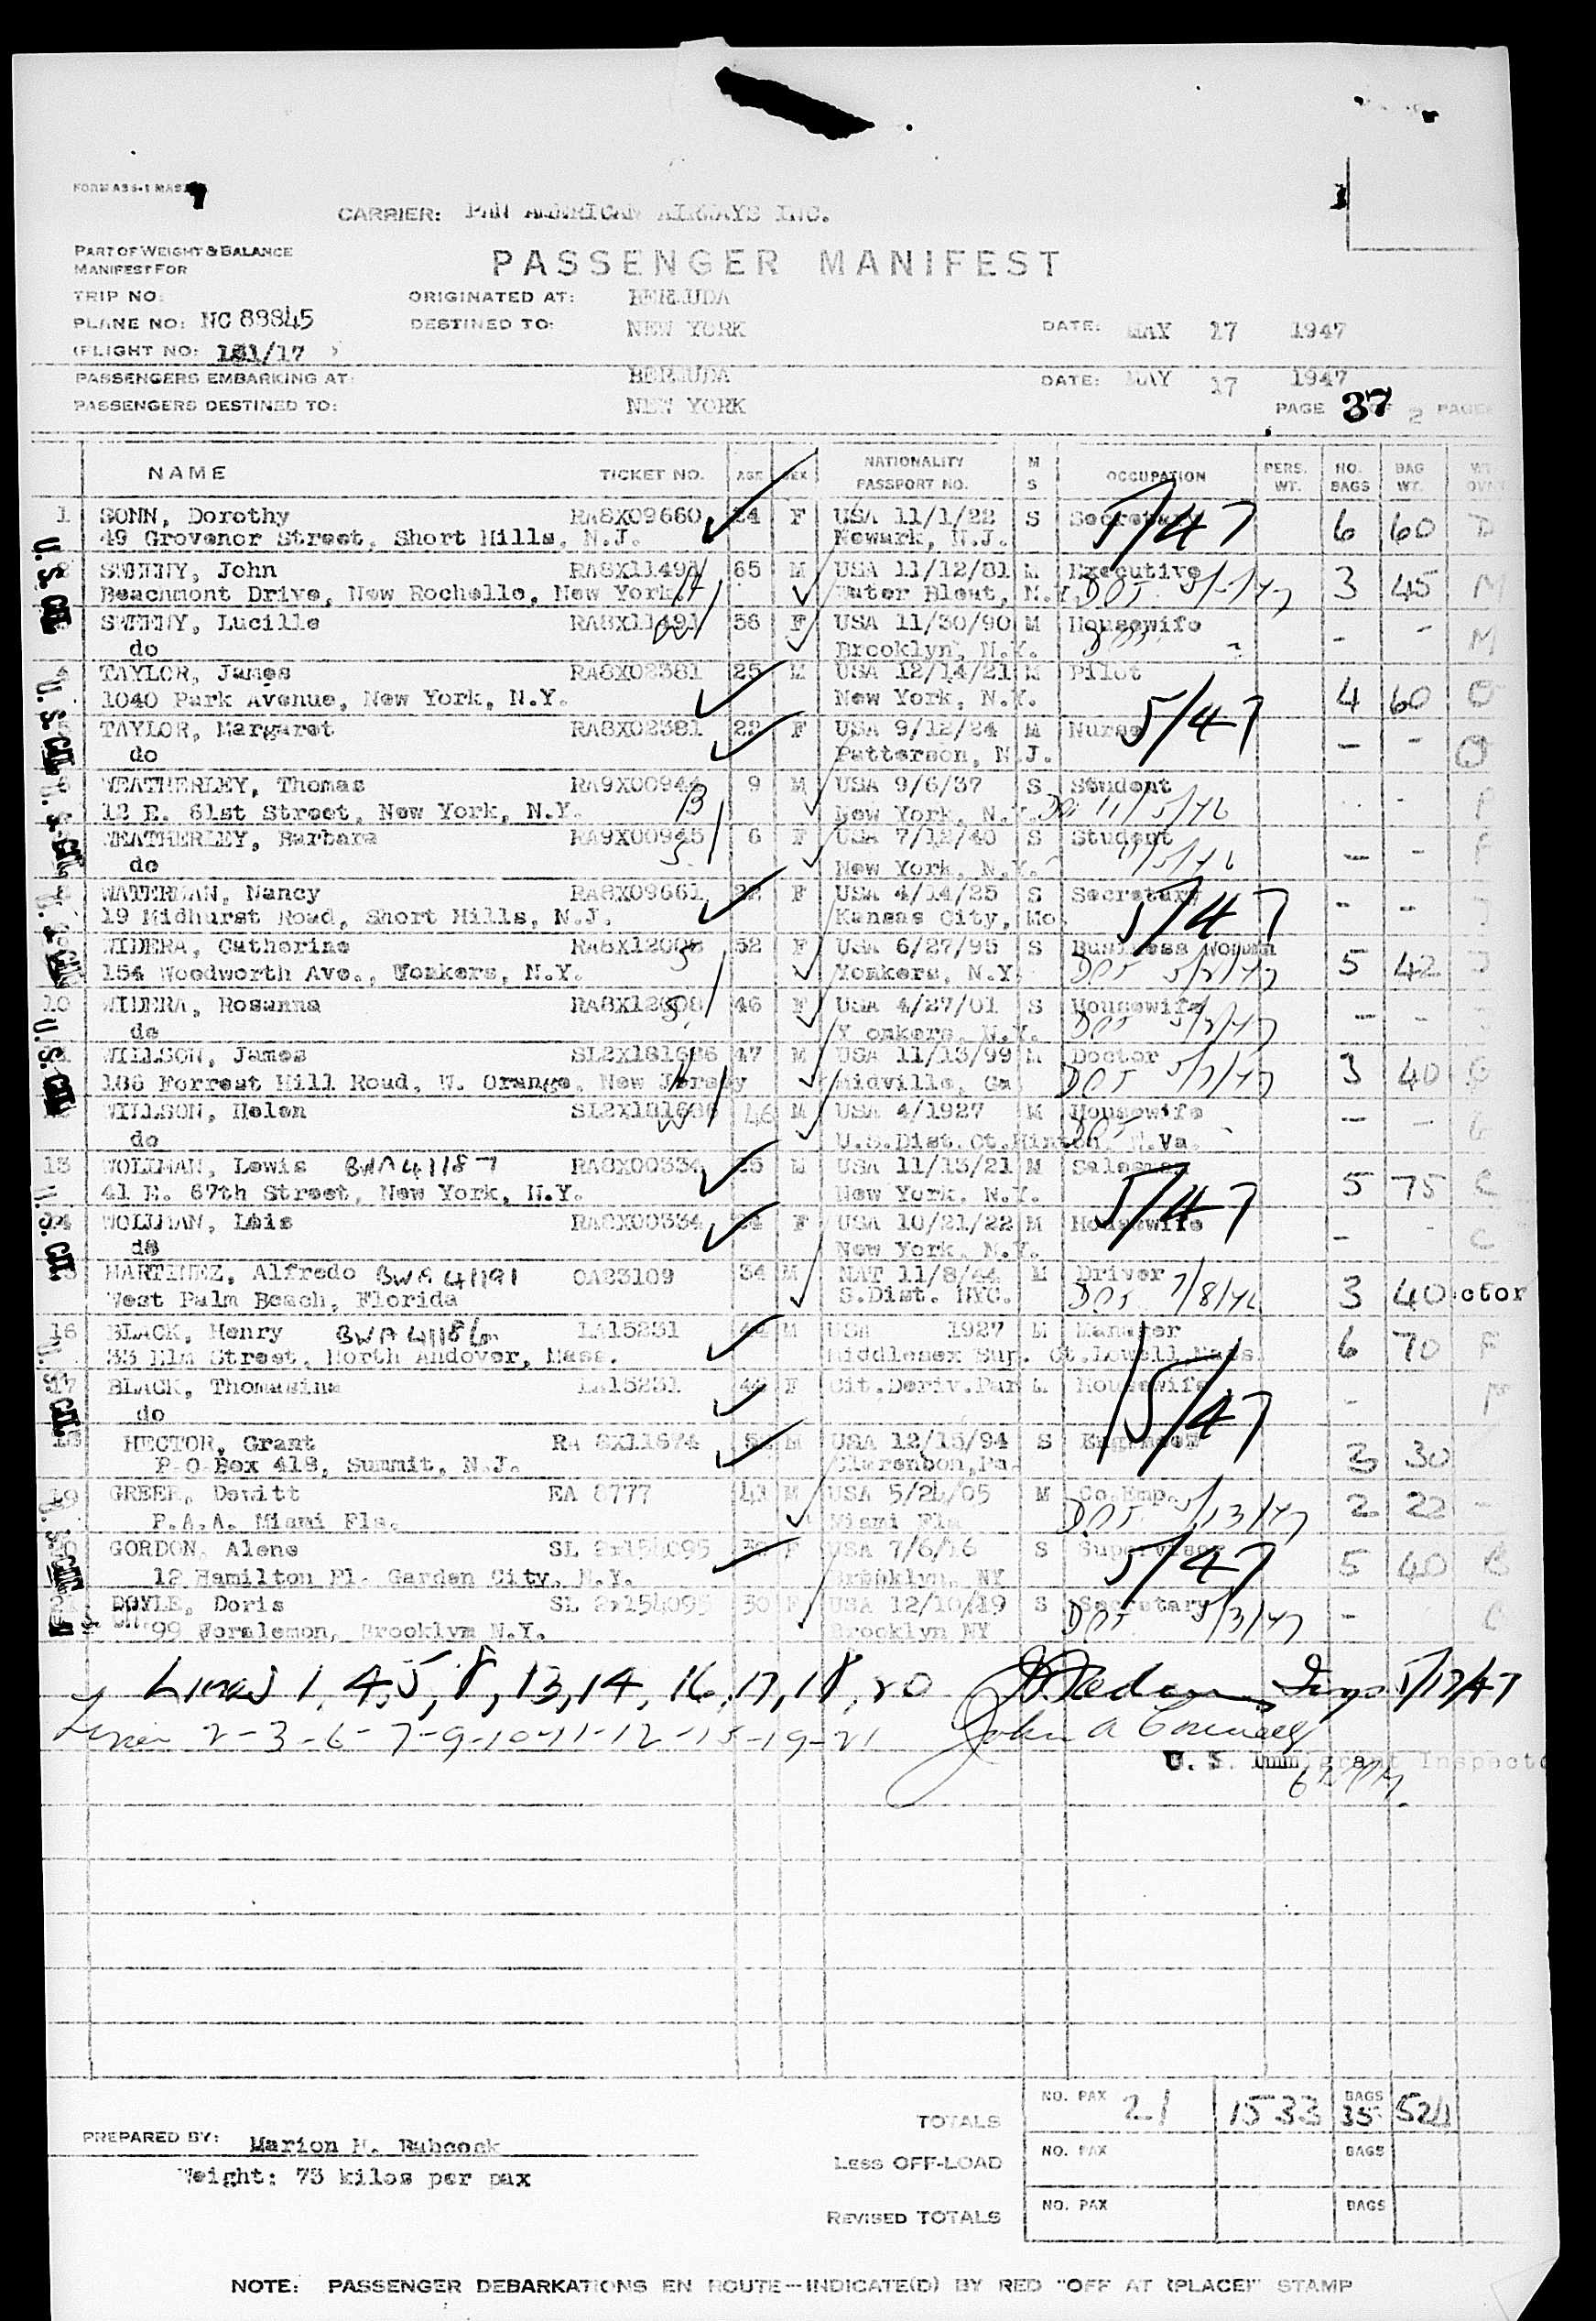 CARRIER: PAN AMERICAN AIRWAYS INC.
PART OF WEIGHT & BALANCE
MANIFEST FOR
PASSENGER MANIFEST
TRIP NO: ORIGINATED AT: BERMUDA
PLANE NO: NC 88845 DESTINED TO: NEW YORK DATE: MAY 17 1947
(FLIGHT NO: 131/17 )
PASSENGERS EMBARKING AT: BERMUDA DATE: MAY 17 1947
PASSENGERS DESTINED TO: NEW YORK PAGE 37 OF 2 PAGES
NAME TICKET NO. AGE SEX NATIONALITY PASSPORT NO. M S OCCUPATION PERS. WT. NO. BAGS BAG WT.
1 SONN, Dorothy RA8X09660 24 F USA 11/1/22 S Secretary 5/47 6 60 D
49 Grovenor Street, Short Hills, N.J. Newark, N.J.
SWEENY, John RA8X11491 65 M USA 11/12/81 M Executive 3 45 M
Beachmont Drive, New Rochelle, New York N.Y.
SWEENY, Lucille RA8X11491 56 F USA 11/30/90 M Housewife - - M
do Brooklyn, N.Y.
TAYLOR, James RA8X02381 25 M USA 12/14/21 M Pilot 4 60 O
1040 Park Avenue, New York, N.Y. New York, N.Y.
TAYLOR, Margaret RA8X02381 22 F USA 9/12/24 M Nurse 5/47 - - O
do Patterson, N.J.
WEATHERLEY, Thomas RA9X00944 9 M USA 9/6/37 S Student
12 E. 61st Street, New York, N.Y. B New York, N.Y. 11/5/46
WEATHERLEY, Barbara RA9X00945 6 F USA 7/12/40 S Student - -
do New York, N.Y. 11/5/46
WATERMAN, Nancy RA8X09661 22 F USA 4/14/25 S Secretary 5/47 - -
19 Midhurst Road, Short Hills, N.J. Kansas City, Mo.
WIDERA, Catherine RA8X12008 52 F USA 6/27/95 S Business Woman 5 42 J
154 Woodworth Ave., Yonkers, N.Y. Yonkers, N.Y.
10 WIDERA, Rosanna RA8X12008 46 F USA 4/27/01 S Housewife - -
do Y onkers, N.Y.
WILLSON, James SL2X181696 47 M USA 11/13/99 M Doctor 3 40 G
188 Forrest Hill Road, W. Orange, New Jersey Midville, Ga
WILLSON, Helen SL2X181696 46 M USA 4/1927 M Housewife - - G
do U.S.Dist.Ct.Hinton, W.Va.
13 WOLLMAN, Lewis BWA 41187 RA8X00334 25 M USA 11/13/21 M Salesman 5/47 5 75 C
41 E. 67th Street, New York, N.Y. New York, N.Y.
14 WOLLMAN, Lois RA8X00334 24 F USA 10/21/22 M Housewife - - C
do New York, N.Y.
MARTINEZ, Alfredo BWA 41191 OA23109 34 M NAT 11/8/44 M Driver 3 40 ctor
West Palm Beach, Florida S.Dist. NYC. 7/8/46
16 BLACK, Henry BWA 41186 LA15231 44 M USA 1927 M Manager 6 70 F
33 Elm Street, North Andover, Mass. Middlesex Sup. Ct.Lowell Mass.
17 BLACK, Thomasina LA15231 44 F Cit.Deriv.Par M Housewife 5/47 - F
do
18 HECTOR, Grant RA 8X11674 52 M USA 12/15/94 S Engineer 3 30
P O Box 418, Summit, N.J. Clarendon, Pa.
19 GREER, Dewitt EA 8777 41 M USA 5/24/05 M Co.Emp. 5/13/47 2 22 -
P.A.A. Miami Fla. Miami Fla
20 GORDON, Alene SL 2x154095 30 F USA 7/6/16 S Supervisor 5/47 5 40 B
12 Hamilton Pl. Garden City, N.Y. Brooklyn, NY
21 DOYLE, Doris SL 2x154095 30 F USA 12/10/19 S Secretary 5/3/47 - C
99 Joralemon, Brooklyn N.Y. Brooklyn NY
U.S. CIT.
U.S. CIT.
U.S. CIT.
U.S. CIT.
U.S. CIT.
U.S. CIT.
U.S. CIT.
U.S. CIT.
Lines 1, 4, 5, 8, 13, 14, 16, 17, 18, 20 Insp 5/17/47
Lines 2-3-6-7-9-10-11-12-15-19-21 John A Connelly
U. S. Immigrant Inspector
TOTALS NO. PAX 21 1533 BAGS 35 524
PREPARED BY: Marion N. Babcock
Less OFF-LOAD NO. PAX BAGS
Weight: 73 kilos per pax
REVISED TOTALS NO. PAX BAGS
NOTE: PASSENGER DEBARKATIONS EN ROUTE--INDICATE(D) BY RED "OFF AT (PLACE)" STAMP